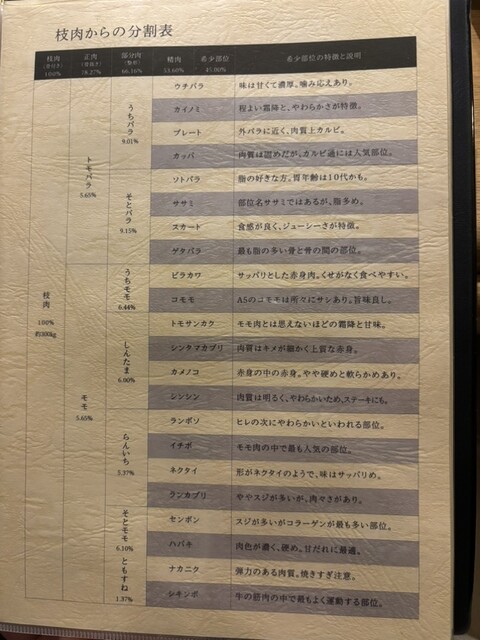 枝肉からの分割表
枝肉 正肉 部分肉 精肉 希少部位 希少部位の特徴と説明
(骨付き) (骨抜き) (整形)
100% 78.27% 66.16% 53.60% 45.00%
枝肉
100%
約500kg
トモバラ
5.65%
うちバラ
9.01%
ウチバラ 味は甘くて濃厚。噛み応えあり。
カイノミ 程よい霜降と、やわらかさが特徴。
プレート 外バラに近く、肉質上カルビ。
カッパ 肉質は固めだが、カルビ通には人気部位。
そとバラ
9.15%
ソトバラ 脂の好きな方。胃年齢は10代かも。
ササミ 部位名ササミではあるが、脂多め。
スカート 食感が良く、ジューシーさが特徴。
ゲタバラ 最も脂の多い骨と骨の間の部位。
モモ
5.65%
うちモモ
6.44%
ピラカワ サッパリとした赤身肉。くせがなく食べやすい。
コモモ A5のコモモは所々にサシあり。旨味良し。
しんたま
6.00%
トモサンカク モモ肉とは思えないほどの霜降と甘味。
シンタマカブリ 肉質はキメが細かく上質な赤身。
カメノコ 赤身の中の赤身。やや硬めと軟らかめあり。
シンシン 肉質は明るく、やわらかいため、ステーキにも。
らんいち
5.37%
ランボソ ヒレの次にやわらかいといわれる部位。
イチボ モモ肉の中で最も人気の部位。
ネクタイ 形がネクタイのようで、味はサッパリめ。
ランカブリ ややスジが多いが、肉々さがあり。
そとモモ
6.10%
センボン スジが多いがコラーゲンが最も多い部位。
ハバキ 肉色が濃く、硬め。甘だれに最適。
ともすね
1.37%
ナカニク 弾力のある肉質。焼きすぎ注意。
シキンボ 牛の筋肉の中で最もよく運動する部位。